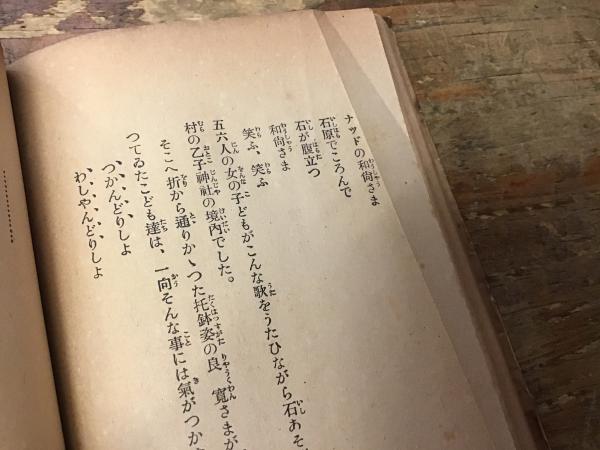 ナッドの和尙さま
石原でころんで
石が腹立つ
和尙さま
笑ふ、笑ふ
五六人の女の子どもがこんな歌をうたひながら石あそ
村の乙子神社の境內でした。
そこへ折から通りかゝつた托鉢姿の良寬さまが
つてゐたこども達は、一向そんな事には氣がつか
つかんどりしよ
わしやんどりしよ